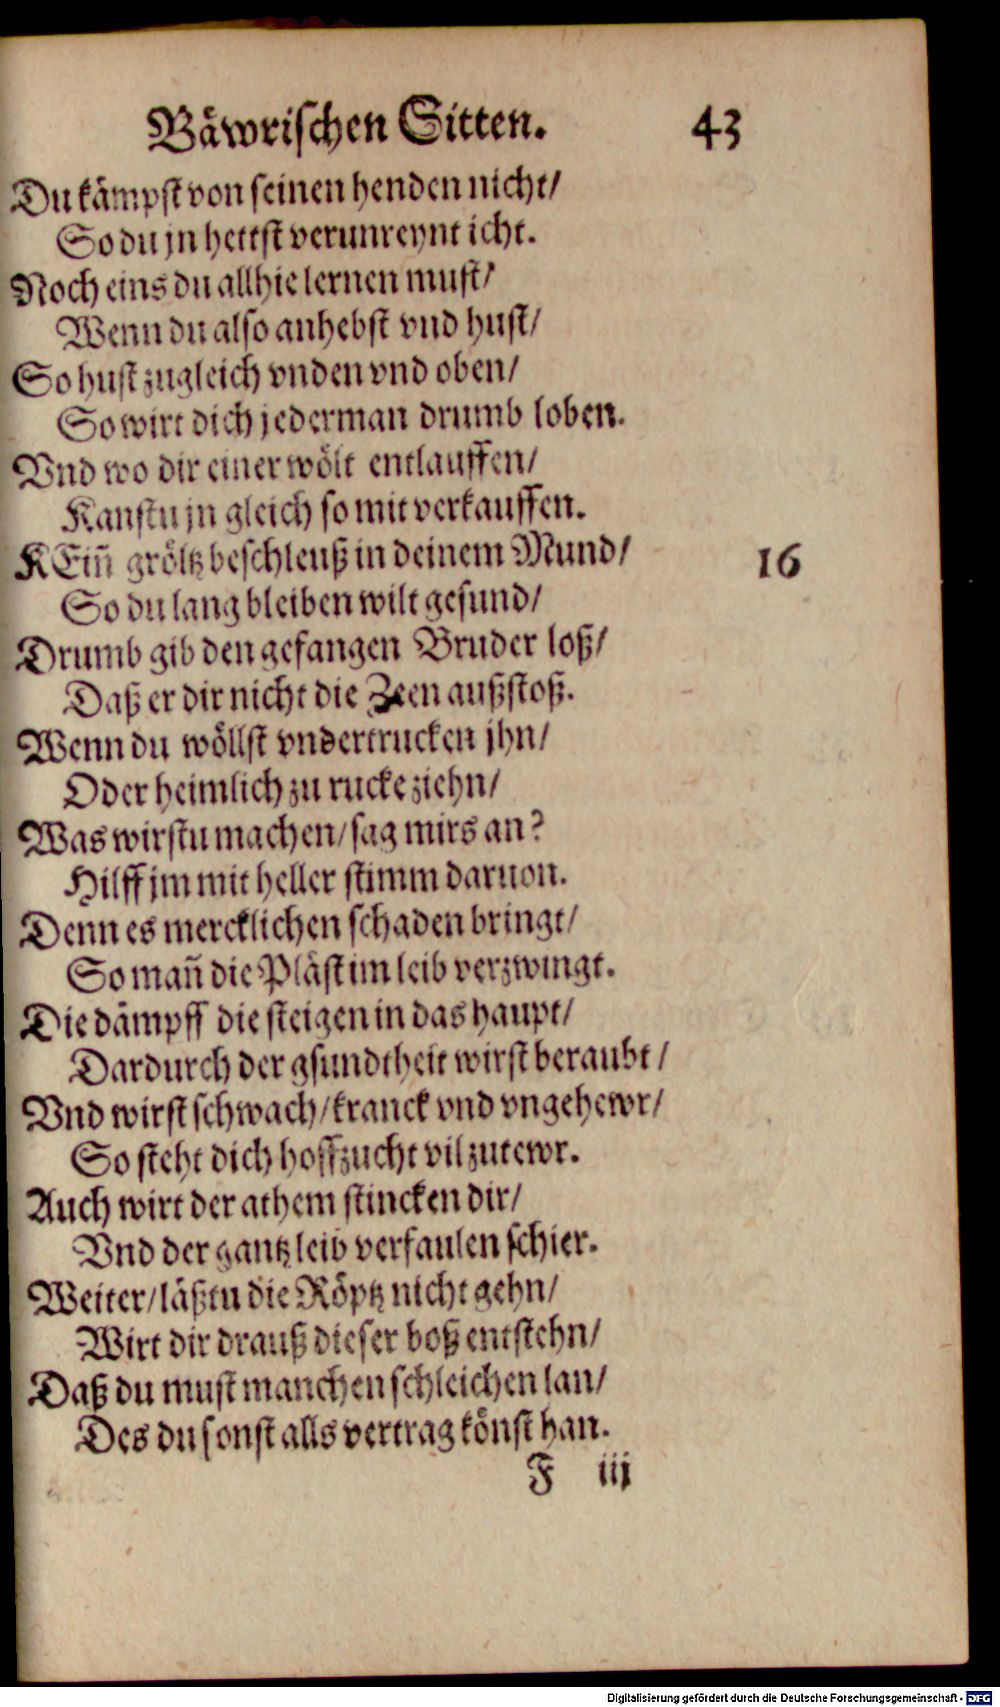 Bäwrischen Sitten. 43
Du kämpst von seinen henden nicht/
So du jn hettst verunreynt icht.
Noch eins du allhie lernen must/
Wenn du also anhebst vnd hust/
So hust zugleich vnden vnd oben/
So wirt dich jederman drumb loben.
Vnd wo dir einer wölt entlauffen/
Kanstu jn gleich so mit verkauffen.
KEin̄ gröltz beschleuß in deinem Mund/ 16
So du lang bleiben wilt gesund/
Drumb gib den gefangen Bruder loß/
Daß er dir nicht die Zeen außstoß.
Wenn du wöllst vndertrucken jhn/
Oder heimlich zu rucke ziehn/
Was wirstu machen/sag mirs an?
Hilff jm mit heller stimm daruon.
Denn es mercklichen schaden bringt/
So man̄ die Pläst im leib verzwingt.
Die dämpff die steigen in das haupt/
Dardurch der gsundtheit wirst beraubt/
Vnd wirst schwach/kranck vnd vngehewr/
So steht dich hoffzucht vil zu tewr.
Auch wirt der athem stincken dir/
Vnd der gantz leib verfaulen schier.
Weiter/läßtu die Röptz nicht gehn/
Wirt dir drauß dieser boß entstehn/
Daß du must manchen schleichen lan/
Des du sonst alls vertrag könst han.
F iij
Digitalisierung gefördert durch die Deutsche Forschungsgemeinschaft - DFG